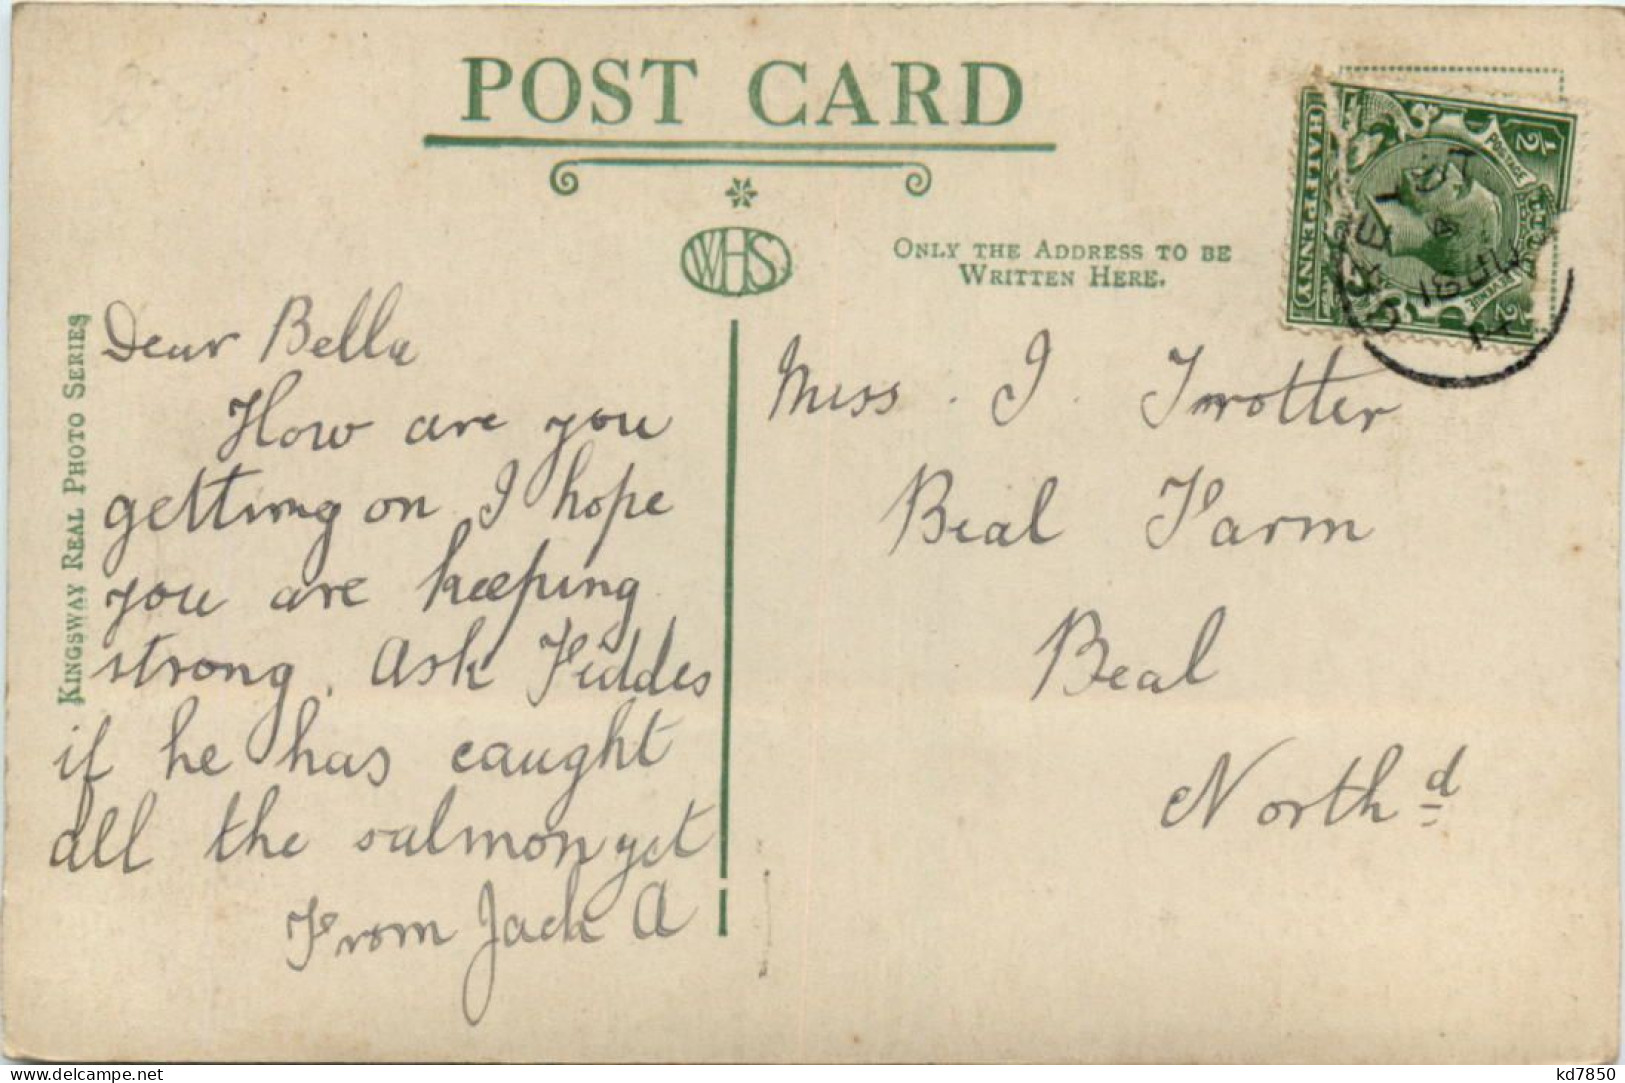 POST CARD
WHS
ONLY THE ADDRESS TO BE
WRITTEN HERE.
KINGSWAY REAL PHOTO SERIES
Dear Bella
How are you
getting on I hope
you are keeping
strong. Ask Fiddes
if he has caught
all the salmon yet
From Jack A
Miss. I. Trotter
Beal Farm
Beal
North d
HALFPENNY
POSTAGE
REVENUE
1/2
1/2
delcampe.net
kd7850